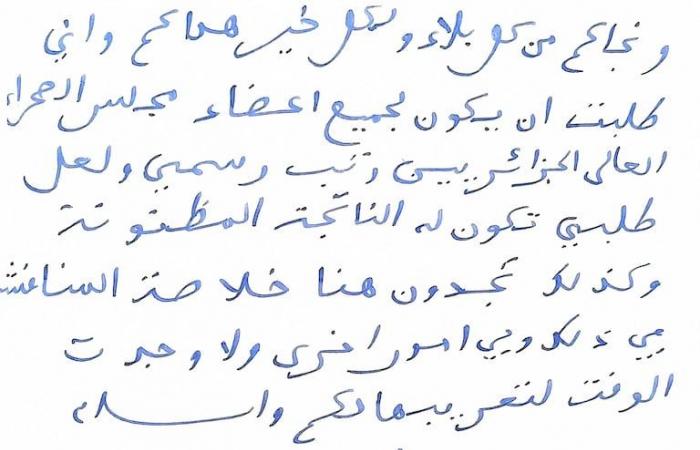 ونجاكم من كل بلاء ولكل خير هداكم واني
طلبت ان يكون لجميع اعضاء مجلس الصحراء
العالى الجزائريين رتب رسمي ولعل
طلبي تكون له الناتجة المظنونة
وكذلك تجدون هنا خلاصة المناقشة
في ذلك وفي امور اخرى ولا وجدت
الوقت لتعريبها لكم والسلام